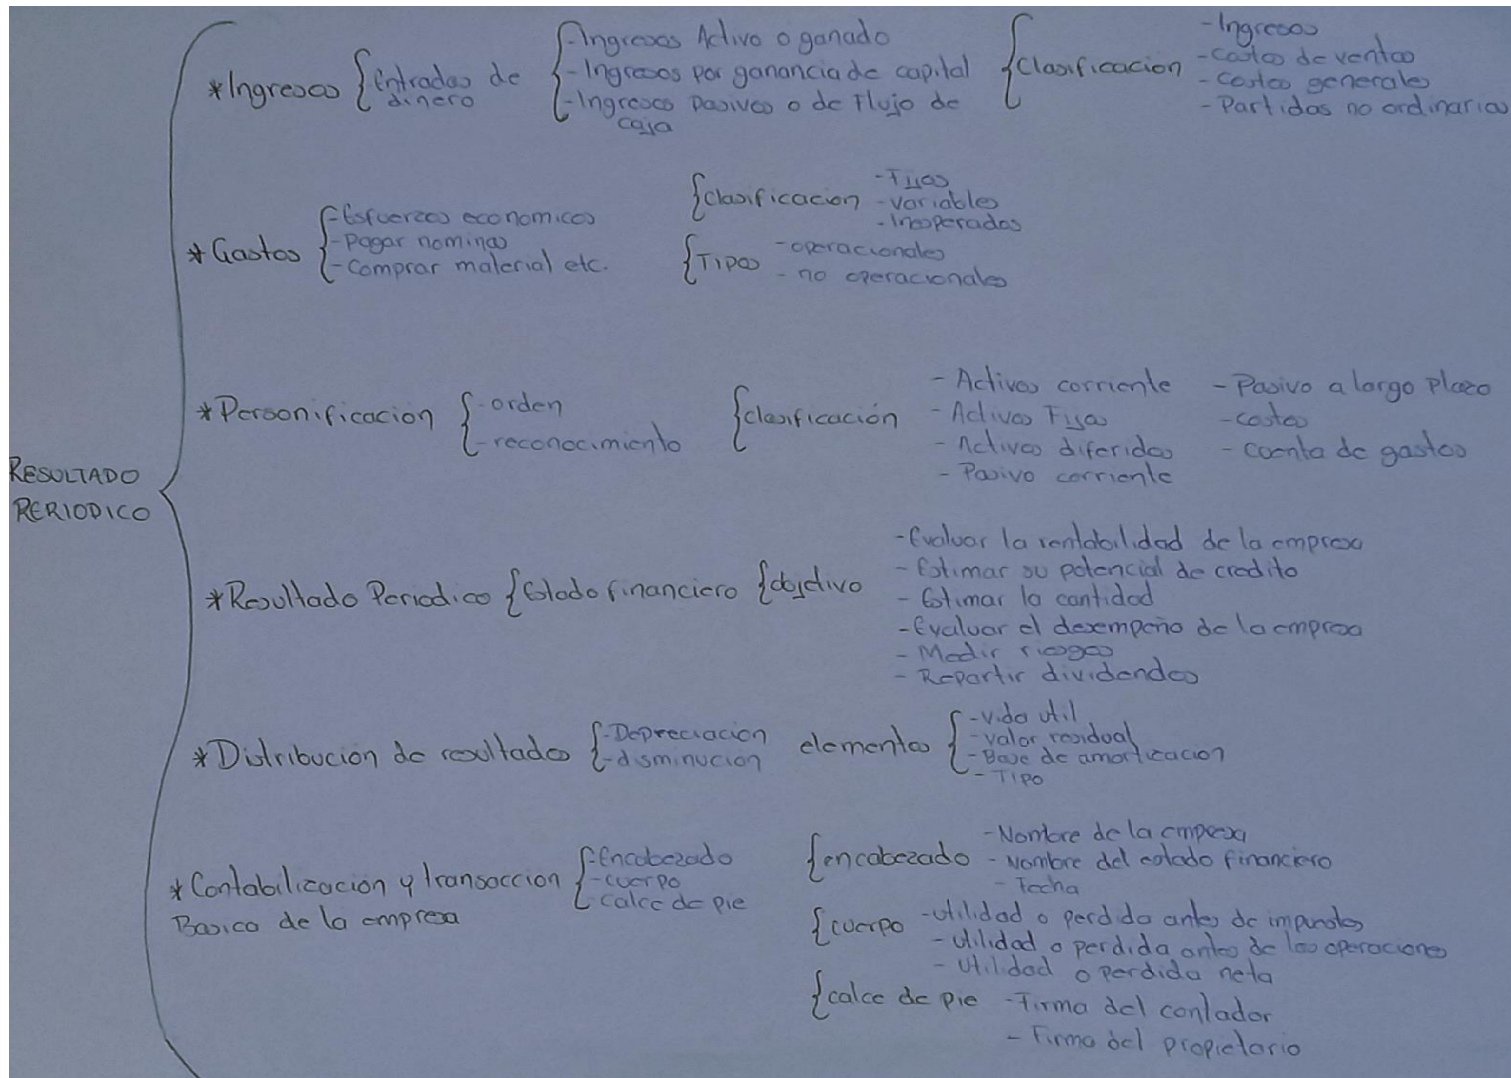 *Ingresos
Entradas de
dinero
-Ingresos Activo o ganado
-Ingresos por ganancia de capital
-Ingresos pasivos o de Flujo de
caja
Clasificacion
-Ingresos
-Costos de ventas
-Costos generales
-Partidas no ordinarias
*Gastos
-Esfuerzos economicos
-Pagar nominas
-Comprar material etc.
clasificacion
-Fijos
-variables
-Inesperados
Tipos
-operacionales
-no operacionales
*Personificacion
-orden
-reconocimiento
clasificación
-Activos corriente
-Activos Fijos
-Activos diferidos
-Pasivo corriente
-Pasivo a largo plazo
-costos
-Cuenta de gastos
RESULTADO
PERIODICO
*Resultado Periodico
Estado financiero
objetivo
-Evaluar la rentabilidad de la empresa
-Estimar su potencial de credito
-Estimar la cantidad
-Evaluar el desempeño de la empresa
-Medir riesgos
-Repartir dividendos
*Distribución de resultados
-Depreciacion
-disminucion
elementos
-vida util
-valor residual
-Base de amortizacion
-Tipo
*Contabilizacion y transaccion
Basica de la empresa
-Encabezado
-cuerpo
-calce de pie
encabezado
-Nombre de la empresa
-Nombre del estado financiero
-Fecha
cuerpo
-utilidad o perdida antes de impuestos
-utilidad o perdida antes de las operaciones
-utilidad o perdida neta
calce de pie
-Firma del contador
-Firma del propietario